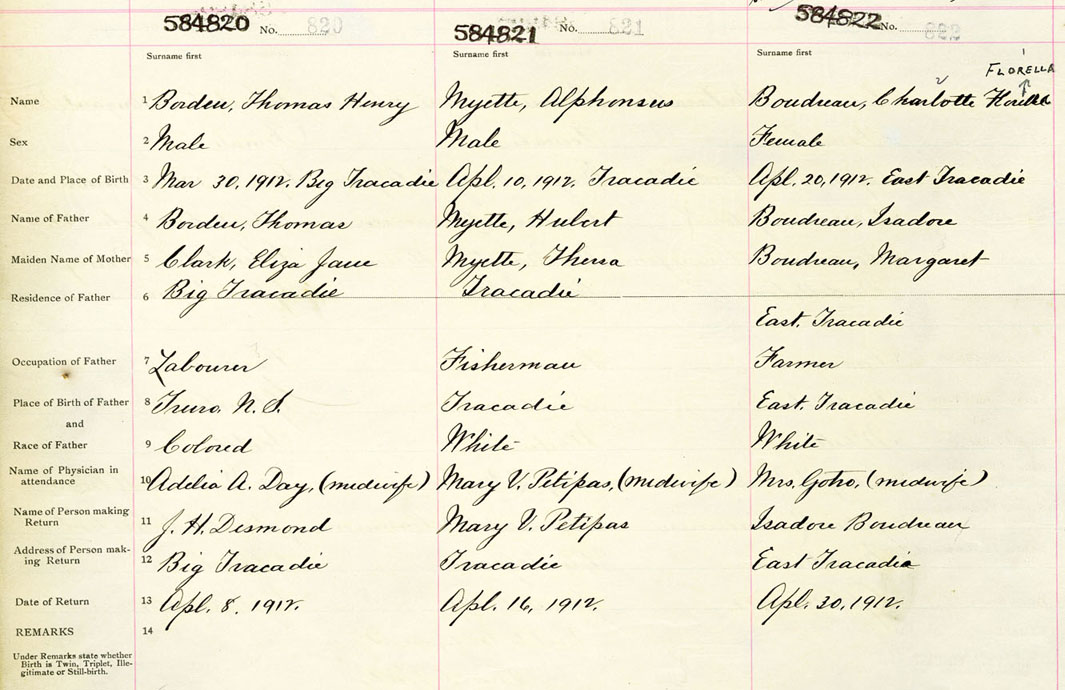 584820 No. 820 584821 No. 821 584822 No. 822
Surname first Surname first Surname first
FLORELLA
Name 1 Borden, Thomas Henry Myette, Alphonsus Boudreau, Charlotte Florella
Sex 2 Male Male Female
Date and Place of Birth 3 Mar 30, 1912. Big Tracadie Apl. 10, 1912. Tracadie Apl. 20, 1912. East Tracadie
Name of Father 4 Borden, Thomas Myette, Hubert Boudreau, Isadore
Maiden Name of Mother 5 Clark, Eliza Jane Myette, Theresa Boudreau, Margaret
Residence of Father 6 Big Tracadie Tracadie
East Tracadie
Occupation of Father 7 Labourer Fisherman Farmer
Place of Birth of Father 8 Truro, N.S. Tracadie East Tracadie
and
Race of Father 9 Colored White White
Name of Physician in
attendance 10 Adelia A. Day, (midwife) Mary V. Petipas, (midwife) Mrs. Goho, (midwife)
Name of Person making
Return 11 J. H. Desmond Mary V. Petipas Isadore Boudreau
Address of Person mak-
ing Return 12 Big Tracadie Tracadie East Tracadie
Date of Return 13 Apl. 8. 1912. Apl. 16, 1912. Apl. 30, 1912.
REMARKS 14
Under Remarks state whether
Birth is Twin, Triplet, Ille-
gitimate or Still-birth.